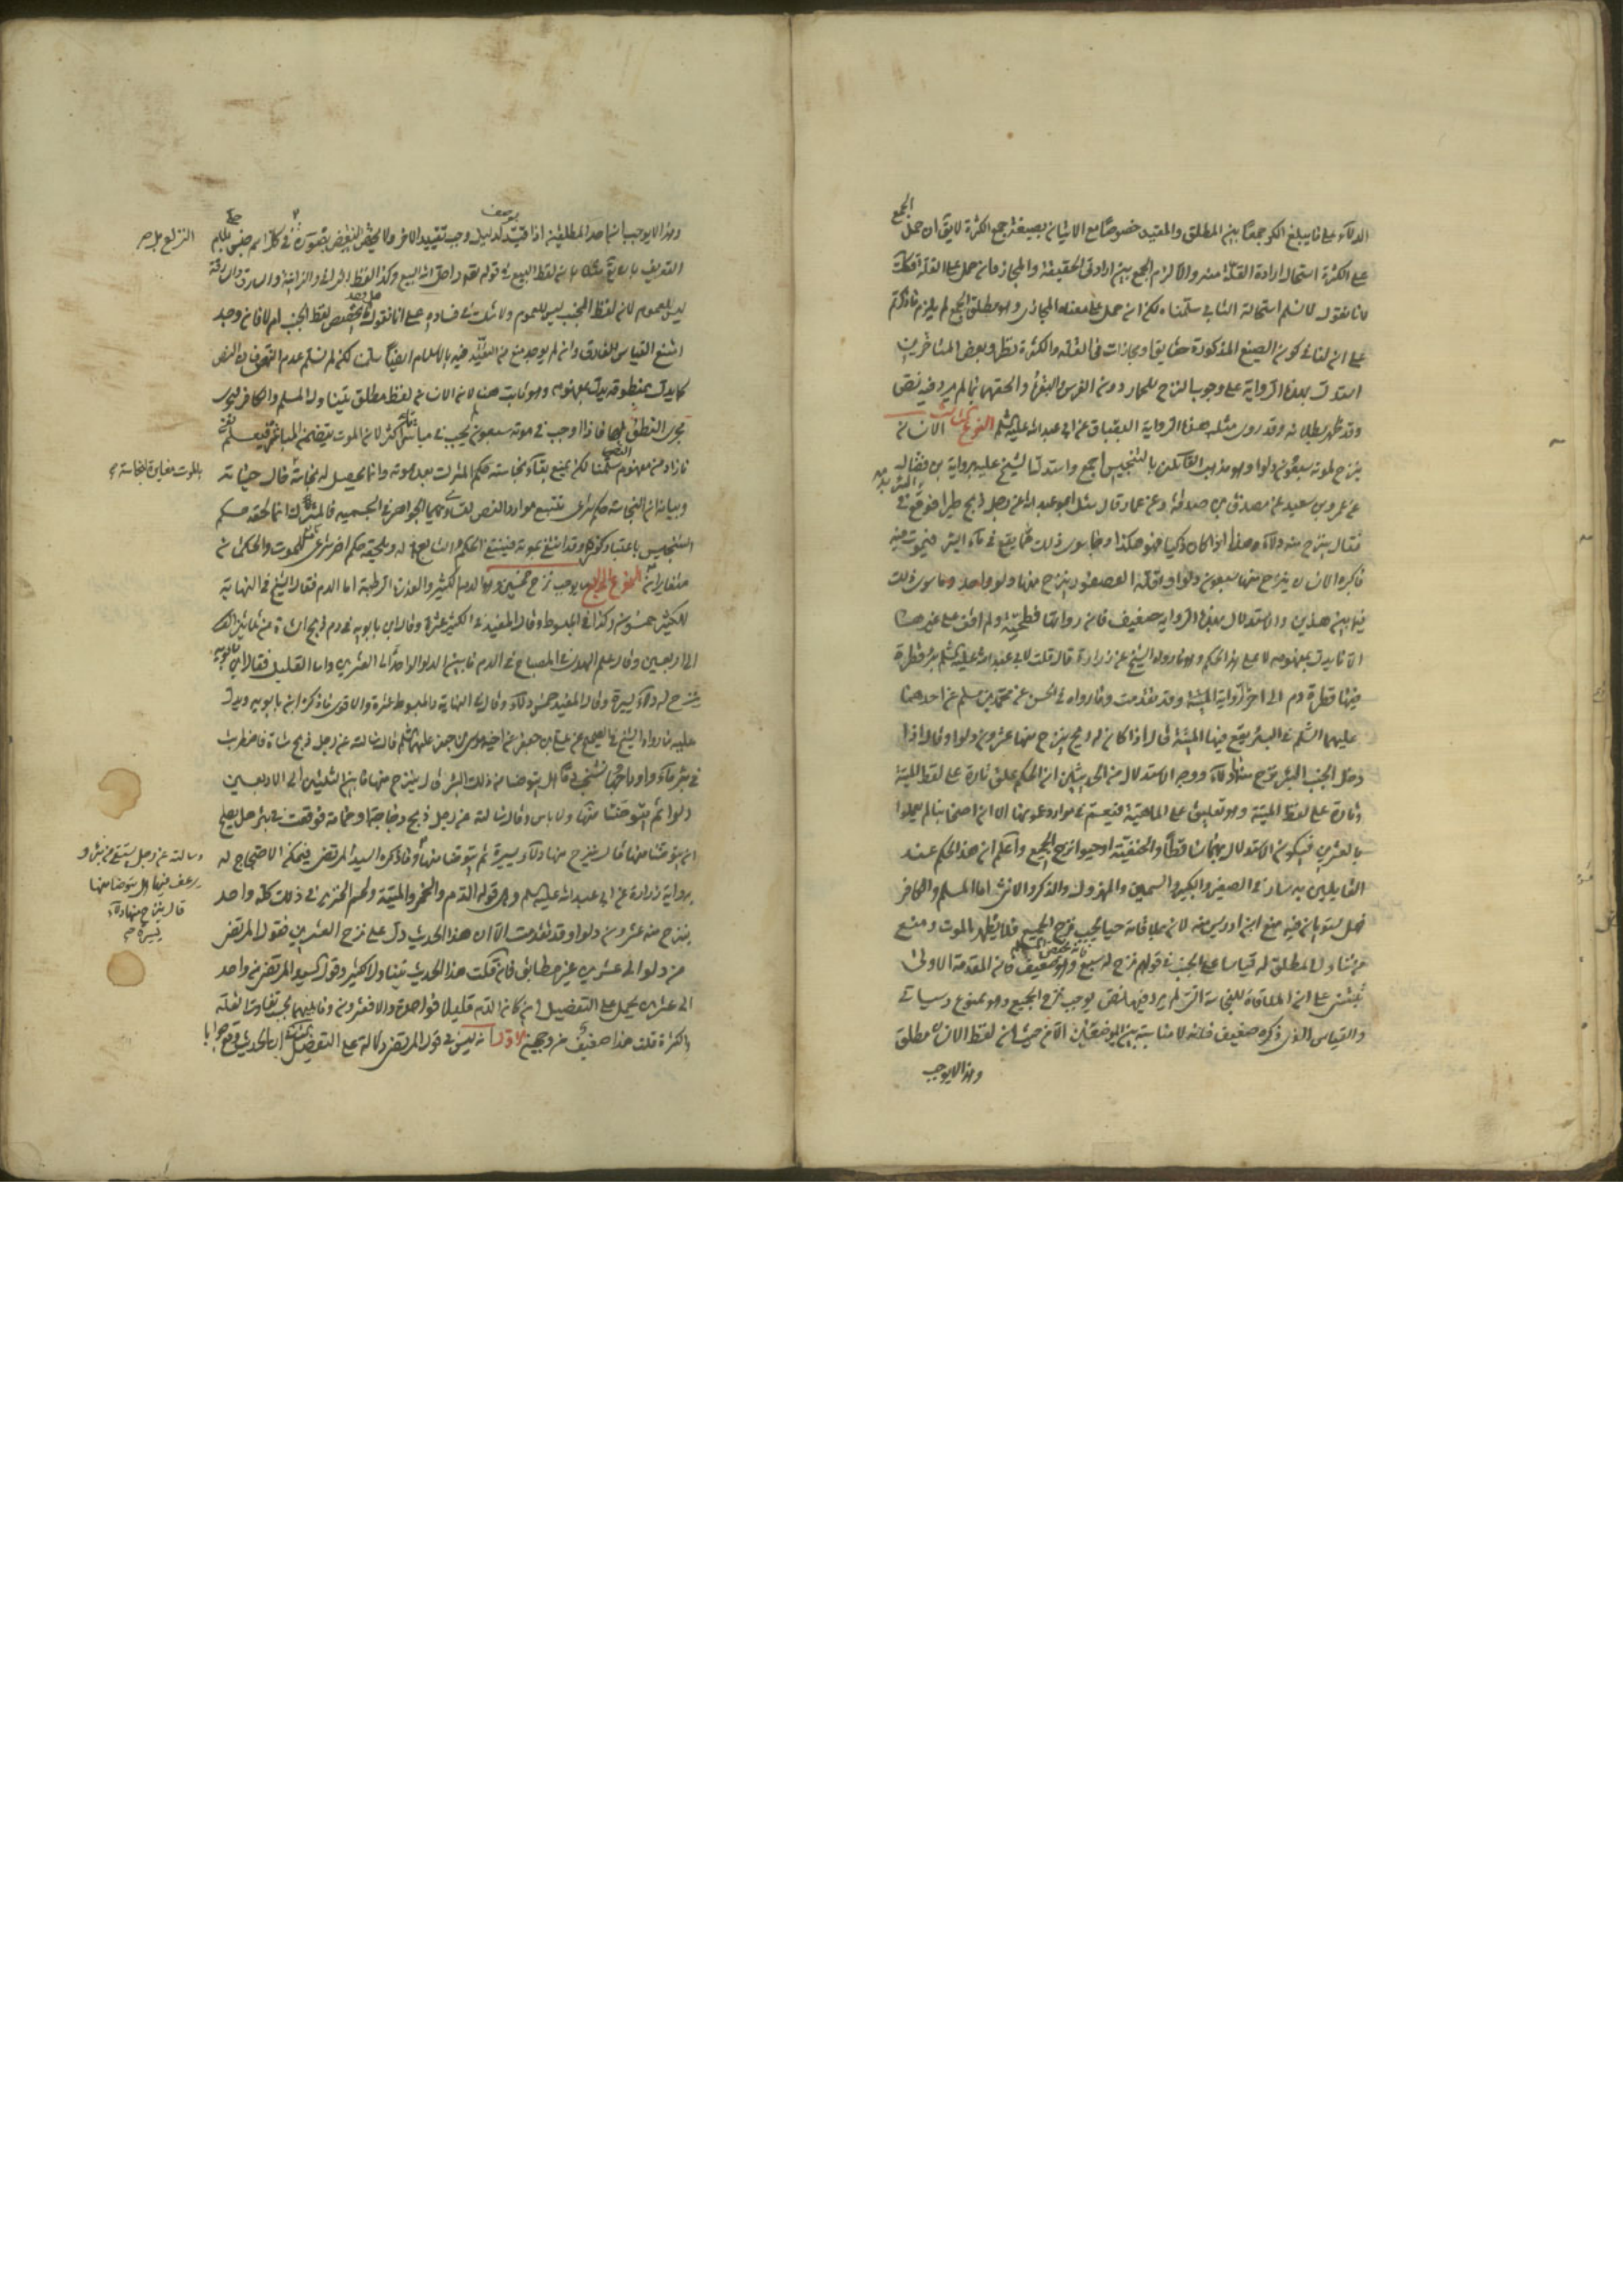 الدلاء على ما يبلغ الكر جمعا بين المطلق والمقيد خصوصا مع الاتيان بصيغة جمع الكثرة لا يق ان حمل الجمع
على الكثرة استحال ارادة القلة منه والا لزم الجمع بين ارادتي الحقيقة والمجاز وان حمل على القلة فكك
لانا نقول لا نسلم استحالة الثاني سلمناه لكن ان حمل على معناه المجازي وهو مطلق الجمع لم يلزم ما ذكرتم
على ان لنا في كون الصيغ المذكورة حقايق او مجازات في القلة والكثرة نظر وبعض المتاخرين
استدل بهذه الرواية على وجوب النزح للحمار دون الفرس والبقرة والحقهما بما لم يرد فيه نص
وقد ظهر بطلانه وقد روى مثل هذه الرواية البقباق عن ابي عبد الله عليه السلم النوع الثالث الانسان
ينزح لموته سبعون دلوا وهو مذهب القائلين بالتنجيس اجمع واستدل الشيخ عليه برواية بن فضال
عن عمرو بن سعيد عن مصدق بن صدقة عن عمار قال سئل ابو عبد الله عن رجل ذبح طيرا فوقع في
فقال ينزح منه دلاء هذا اذا كان ذكيا فهو هكذا وما سوى ذلك مما يقع في ماء البئر فيموت فيه
فاكبره الانسان ينزح منها سبعون دلوا واقله العصفور ينزح منها دلو واحد وما سوى ذلك
فيما بين هذين والاستدلال بهذه الرواية ضعيف فان رواتها فطحية ولم اقف على غير هذا
الا ما يدل بمفهومه لا على هذا الحكم وهو ما رواه الشيخ عن زرارة قال قلت لابي عبد الله عليه السلم بئر قطرة
فيها قطرة دم الى اخر الرواية المبينة وقد تقدمت وما رواه في الحسن عن محمد بن مسلم عن احدهما
عليهما السلم في البئر يقع فيها الميتة قال اذا كان له ريح ينزح منها عشرون دلوا وقال اذا
دخل الجنب البئر نزح منها دلاء ووجه الاستدلال من الحديثين ان الحكم علق تارة على لفظ الميتة
وتارة على لفظ الميتة وهو تعليق على الماهية فيعم في موارد عمومها الا ان اصحابنا لم يعملوا
بالعشرين فيكون الاستدلال بهما ساقطا والحنفية اوجبوا نزح الجميع واعلم ان هذا الحكم عند
القايلين به سار في الصغير والكبير والسمين والمهزول والذكر والانثى اما المسلم والكافر
فهل يستويان فيه منع ابن ادريس منه لان ملاقاته حيا يجب نزح الجميع فلا يطهر بالموت ومنع
من تناول المطلق له قياسا على الجنب في قولهم نزح له سبع وهو ضعيف فان المقدمة الاولى
تبتنى على ان الملاقاة للنجاسة التي لم يرد فيها نص يوجب نزح الجميع وهو ممنوع وسياتي
والقياس الذي ذكره ضعيف فانه لا مناسبة بين الموضعين الا من حيث ان لفظ الانسان مطلق
وهذا لا يوجب
وهذا لا يوجب انما احد المطلقين اذا قيد لدليل وجب تقييد الاخر ولا يختص النقض بصورة في كل اسم جنس
التعريف بان يق مثلا بان لفظ البيع في قوله تعالى واحل الله البيع وكذا لفظ الزاني والزانية والسارق والسارقة
ليس للعموم لان لفظ الجنب ليس للعموم ولا شك في فساده على انا نقول تخصيص لفظ الجنب ام لا فان وجد
امتنع القياس للفارق وان لم يوجد منع من التقييد فيه بالاسلام ايضا سلمنا لكن لم نسلم عدم النص
كما يدل بمنطوقه يدل بمفهومه وهو ثابت هنا لان الانسان لفظ مطلق يتناول المسلم والكافر فيجرى
مجرى النطق بهما فاذا اوجب في موته سبعون لم يجب في مباشرته اكثر لان الموت يتضمن المباشرة فيعلم
ما زاد من مفهوم النص سلمنا لكن نمنع بقاء نجاسته حكم المشرك بعد موته وانما يحصل له نجاسة حال حياته
وبيانه ان النجاسة حكم شرعى يتبع موارد النص لتساوى الجواهر في الجسمية فالمشرك انما لحقه حكم
التنجيس باعتبار كفره وقد انتفى بموته فينتفى الحكم التابع له ويلحقه حكم اخر شرعى تابع للموت والحكمان
متغايران النوع الرابع ما يوجب نزح خمسين وهو الدم الكثير والعذرة الرطبة اما الدم فقال الشيخ في النهاية
للكثير خمسون وكذا في المبسوط وقال المفيد في الكثير عشرة وقال ابن بابويه في دم ذبح الشاة من ثلاثين
الى اربعين وقال علم الهدى في المصباح في الدم ما بين الدلو الواحد الى العشرين واما القليل فقال ابن بابويه
ينزح له دلاء يسيرة وقال المفيد خمس دلاء وقال في النهاية والمبسوط عشرة والاقوى ما ذكره ابن بابويه ويدل
عليه ما رواه الشيخ في الصحيح عن علي بن جعفر عن اخيه موسى بن جعفر عليهما السلم قال سالته عن رجل ذبح شاة فاضطربت
في بئر ماء واوداجها تشخب دما هل يتوضا من ذلك البئر قال ينزح منها ما بين الثلثين الى الاربعين
دلوا ثم يتوضا منها ولا باس وقال سالته عن رجل ذبح دجاجة او حمامة فوقعت في بئر هل يصلح
ان يتوضا منها قال ينزح منها دلاء يسيرة ثم يتوضا منها وما ذكره السيد المرتضى فيمكن الاحتجاج له
برواية زرارة عن ابي عبد الله عليه السلم وهي قوله الدم والخمر والميتة ولحم الخنزير في ذلك كله واحد
ينزح منه عشرون دلوا وقد تقدمت الا ان هذا الحديث دل على نزح العشرين فقول المرتضى
من دلو الى عشرين غير مطابق فان قلت هذا الحديث يتناول الكثير وقول السيد المرتضى من واحد
الى عشرين يحمل على التفضيل ان كان الدم قليلا فواحدة والا فعشرون وما بينهما بحسب تفاوت القلة
والكثرة قلت هذا ضعيف من وجهين الاول انه ليس في قول المرتضى دلالة على التفضيل
الموت مغايرة لنجاسة
وسالته عن رجل يستقى من بئر و
يرعف فيها هل يتوضا منها
قال ينزح منها دلاء
يسيرة